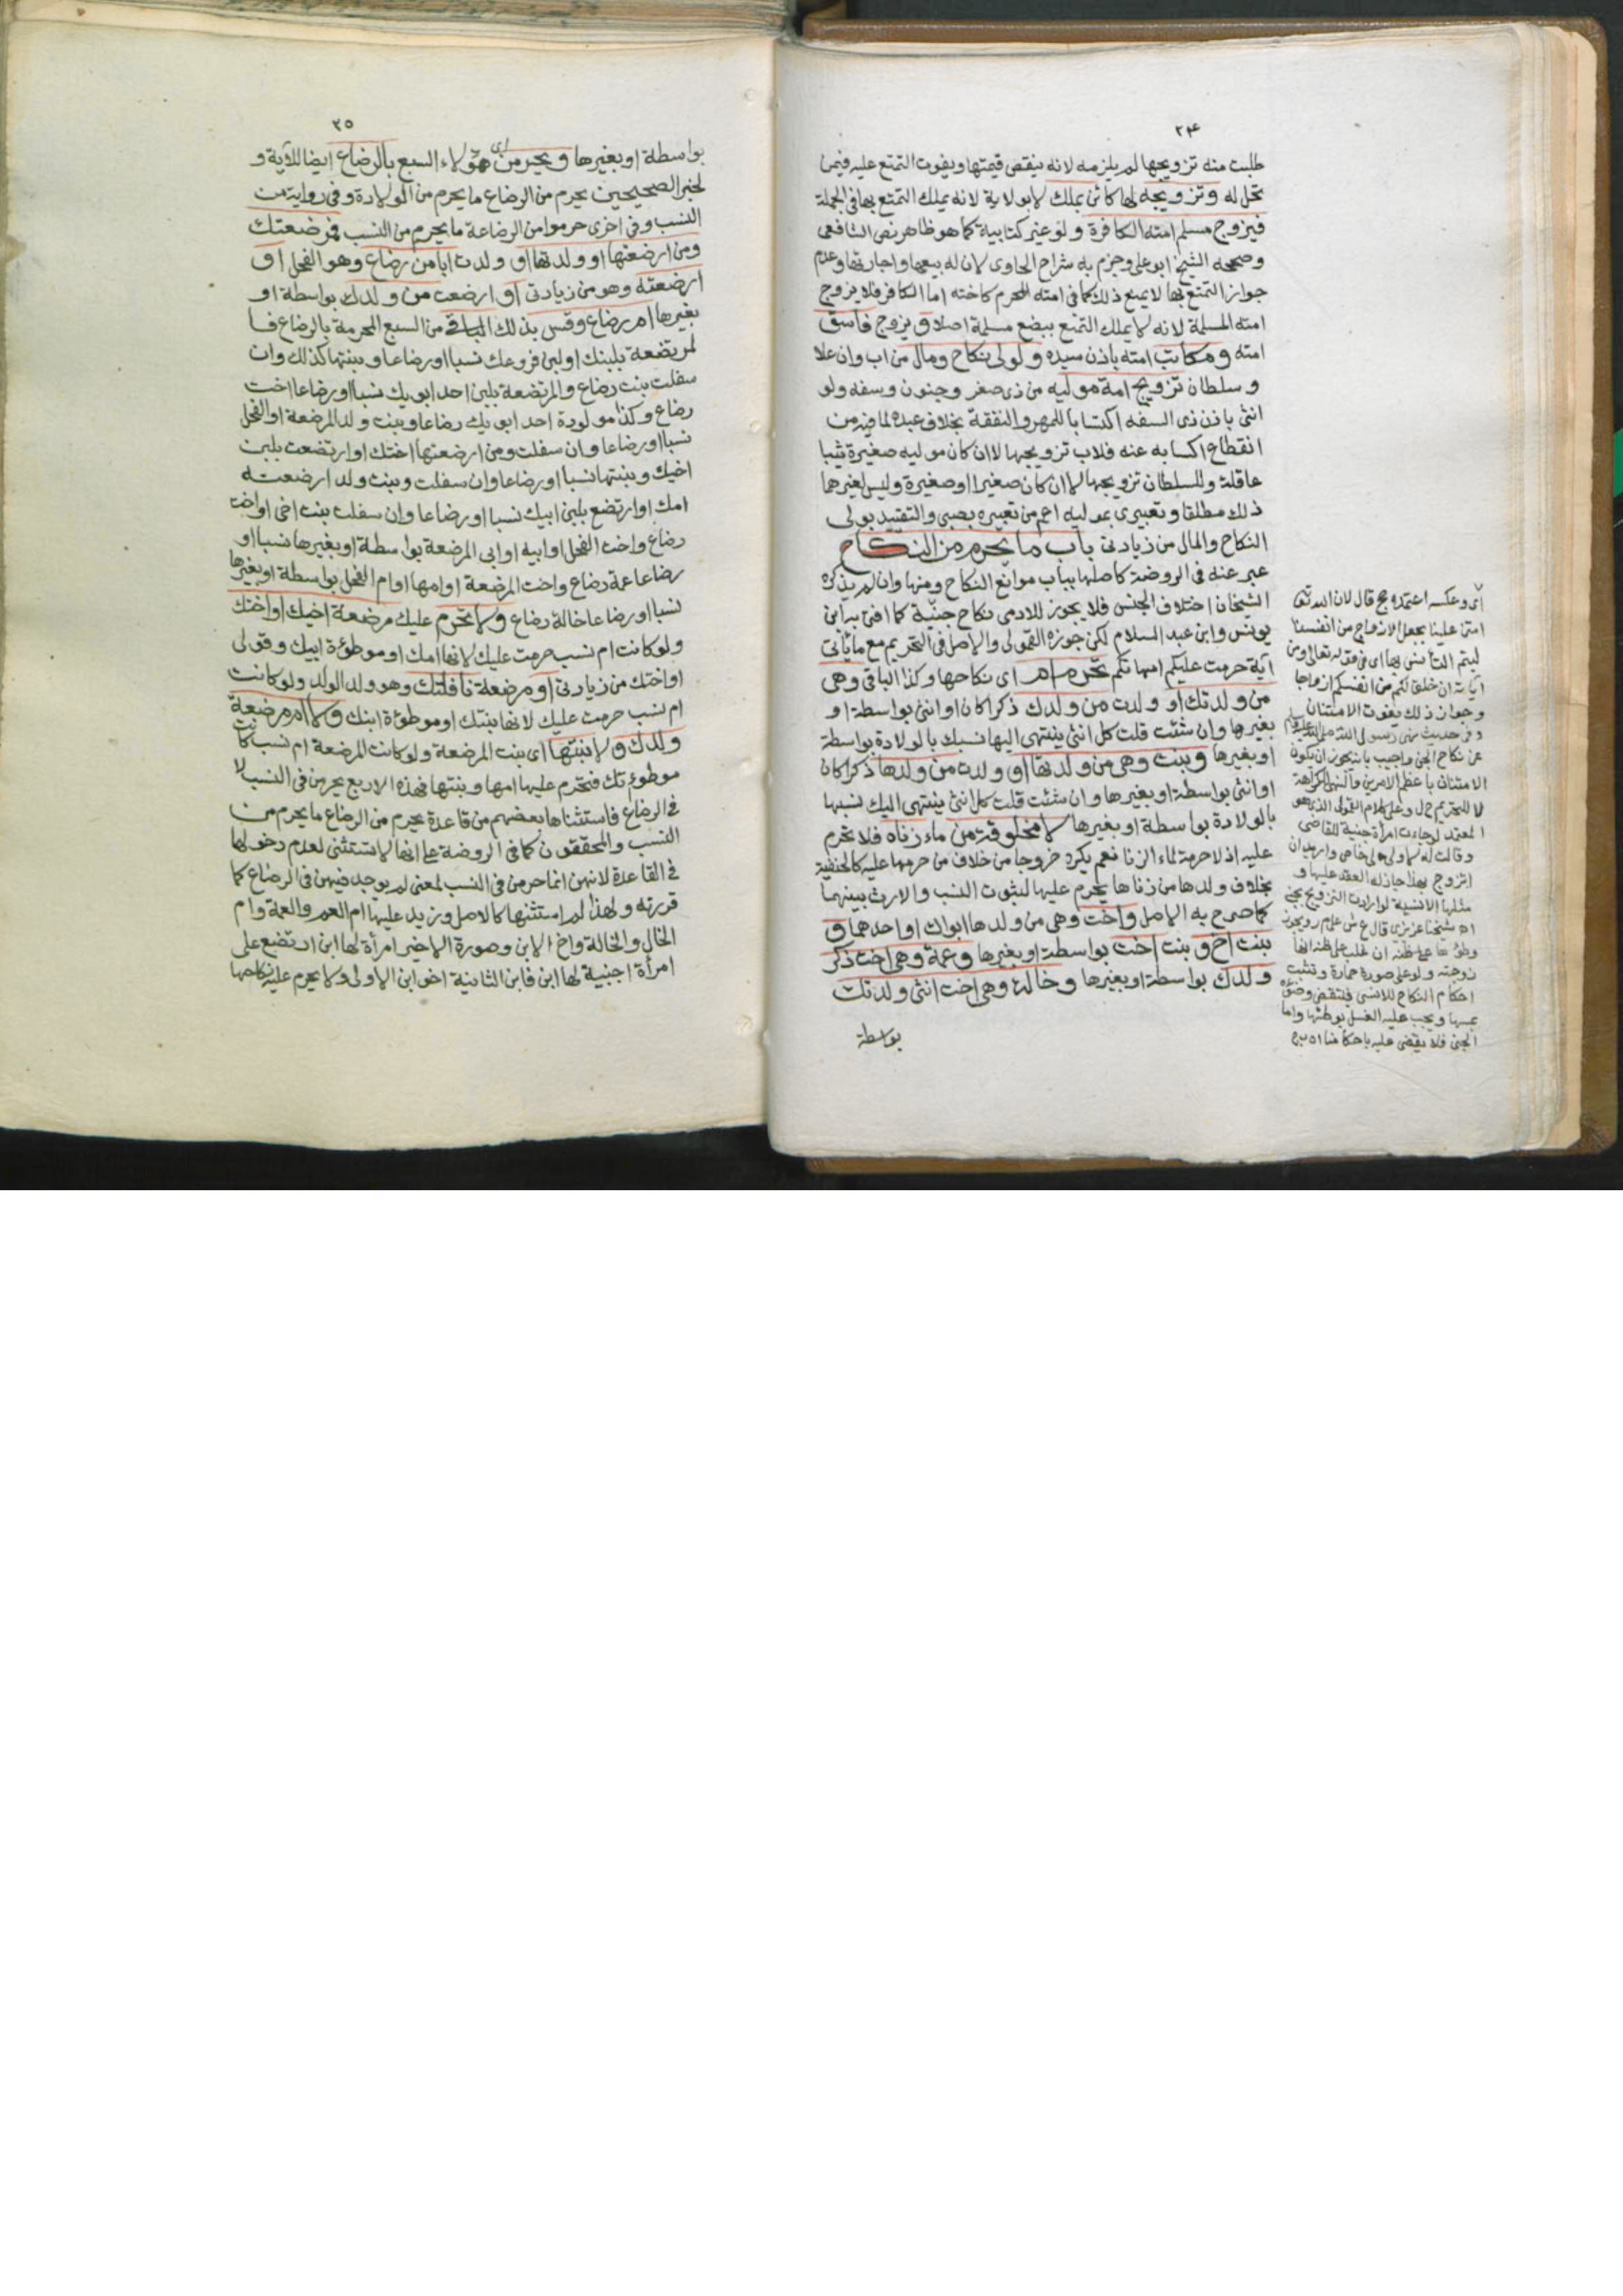 ٢٤
طلبت منه تزويجها لم يلزمه لانه ينقص قيمتها ويفوت التمتع عليه فيمن
تحل له وتزويجه لها كائن بملك لا بولاية لانه يملك التمتع بها في الجملة
فيزوج مسلم امته الكافرة ولو غير كتابية كما هو ظاهر نص الشافعي
وصححه الشيخ ابو علي وجزم به شراح الحاوي لان له بيعها واجارتها وعدم
جواز التمتع بها لا يمنع ذلك كما في امته المحرم كاخته اما الكافر فلا يزوج
امته المسلمة لانه لا يملك التمتع ببضع مسلمة اصلا و يزوج فاسق
امته ومكاتب امته باذن سيده ولولي نكاح ومال من اب وان علا
وسلطان تزويج امة موليه من ذي صغر وجنون وسفه ولو
انثى باذن ذي السفه اكتسابا للمهر والنفقة بخلاف عبده لما فيه من
انقطاع اكسابه عنه فلاب تزويجها لا ان كان موليه صغيرة ثيبا
عاقلة وللسلطان تزويجها لا ان كان صغيرا او صغيرة وليس لغيرهما
ذلك مطلقا وتعبيري بموليه اعم من تعبيره بصبي والتقييد بولي
النكاح والمال من زيادتي باب ما يحرم من النكاح
عبر عنه في الروضة كاصلها بباب موانع النكاح ومنها وان لم يذكره
الشيخان اختلاف الجنس فلا يجوز للادمي نكاح جنية كما افتى به ابن
يونس وابن عبد السلام لكن جوزه القمولي والاصل في التحريم مع ما ياتي
آية حرمت عليكم امهاتكم تحرم ام اي نكاحها وكذا الباقي وهي
من ولدتك او ولدت من ولدك ذكرا كان او انثى بواسطة او
بغيرها وان شئت قلت كل انثى ينتهي اليها نسبك بالولادة بواسطة
او بغيرها وبنت وهي من ولدتها او ولدت من ولدها ذكرا كان
او انثى بواسطة او بغيرها وان شئت قلت كل انثى ينتهي اليك نسبها
بالولادة بواسطة او بغيرها لا مخلوقة من ماء زناه فلا تحرم
عليه اذ لا حرمة لماء الزنا نعم يكره خروجا من خلاف من حرمها عليه كالحنفية
بخلاف ولدها من زناها يحرم عليها لثبوت النسب والارث بينهما
كما صرح به الاصل واخت وهي من ولدها ابواك او احدهما و
بنت اخ و بنت اخت بواسطة او بغيرها وعمة وهي اخت ذكر
ولدك بواسطة او بغيرها وخالة وهي اخت انثى ولدتك
بواسطة
اي وعكسه اعتمده حج قال لان الله تعالى
امتن علينا بجعل الازواج من انفسنا
ليتم التانس بها اي في قوله تعالى ومن
آياته ان خلق لكم من انفسكم ازواجا
وجواز ذلك يفوت الامتنان
وفي حديث نهى رسول الله صلى الله عليه وسلم
عن نكاح الجن واجيب بانه يجوز ان يكون
الامتنان باعظم الامرين والنهي للكراهة
لا للتحريم ح ل وعلى كلام القمولي الذي هو
المعتمد لو جاءت امراة جنية للقاضي
وقالت له لا ولي لي خاص واريد ان
اتزوج بهذا جاز له العقد عليها و
مثلها الانسية لو ارادت التزويج بجني
اه شيخنا عزيزي قال ع ش على م ر ويجوز
وطؤها على ظنه ان غلب على ظنه انها
زوجته ولو على صورة حمارة وتثبت
احكام النكاح للانسي فينتقض وضوؤه
بمسها ويجب عليه الغسل بوطئها واما
الجني فلا يقضى عليه باحكامنا اه
٢٥
بواسطة او بغيرها ويحرمن اي هؤلاء السبع بالرضاع ايضا للآية و
لخبر الصحيحين يحرم من الرضاع ما يحرم من الولادة وفي رواية من
النسب وفي اخرى حرموا من الرضاعة ما يحرم من النسب فمرضعتك
ومن ارضعتها او ولدتها او ولدت ابا من رضاع وهو الفحل او
ارضعته وهو من زيادتي او ارضعت من ولدك بواسطة او
بغيرها ام رضاع وقس بذلك الباقي من السبع المحرمة بالرضاع فا
لمرتضعة بلبنك او لبن فروعك نسبا او رضاعا وبنتها كذلك وان
سفلت بنت رضاع والمرتضعة بلبن احد ابويك نسبا او رضاعا اخت
رضاع وكذا مولودة احد ابويك رضاعا وبنت ولد المرضعة او الفحل
نسبا او رضاعا وان سفلت ومن ارضعتها اختك او ارتضعت بلبن
اخيك وبنتها نسبا او رضاعا وان سفلت وبنت ولد ارضعته
امك او ارتضع بلبن ابيك نسبا او رضاعا وان سفلت بنت اخي او اخت
رضاع واخت الفحل او ابيه او ابي المرضعة بواسطة او بغيرها نسبا او
رضاعا عمة رضاع واخت المرضعة او امها او ام الفحل بواسطة او بغيرها
نسبا او رضاعا خالة رضاع ولا تحرم عليك مرضعة اخيك او اختك
ولو كانت ام نسب حرمت عليك لانها امك او موطؤة ابيك وقولي
او اختك من زيادتي او مرضعة نافلتك وهو ولد الولد ولو كانت
ام نسب حرمت عليك لانها بنتك او موطؤة ابنك ولا ام مرضعة
ولدك ولا بنتها اي بنت المرضعة ولو كانت المرضعة ام نسب كانت
موطوءتك فتحرم عليها امها وبنتها فهذه الاربع يحرمن في النسب لا
في الرضاع فاستثناها بعضهم من قاعدة يحرم من الرضاع ما يحرم من
النسب والمحققون كما في الروضة على انها لا تستثنى لعدم دخولها
في القاعدة لانهن انما حرمن في النسب لمعنى لم يوجد فيهن في الرضاع كما
قررته ولهذا لم استثنها كالاصل وزيد عليها ام العم والعمة وام
الخال والخالة واخ الابن وصورة الاخير امرأة لها ابن ارتضع على
امرأة اجنبية لها ابن فابن الثانية اخو ابن الاولى ولا يحرم عليه نكاحها